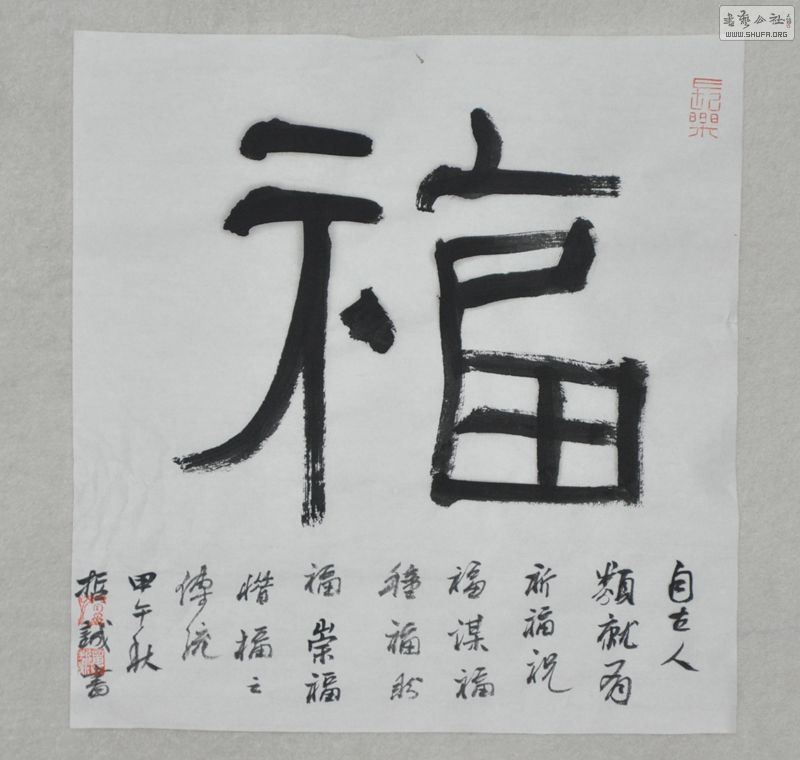 福
自古人
類就有
祈福祝
福謀福
種福
福崇福
惜福之
傳統
甲午秋
哲誠書
書藝公社
WWW.SHUFA.ORG